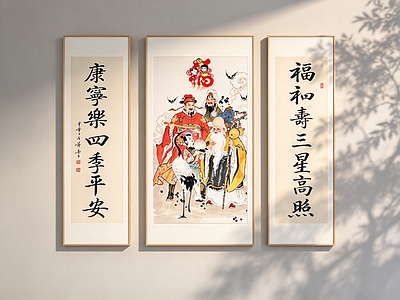 福和壽三星高照
福
康寧樂四季平安